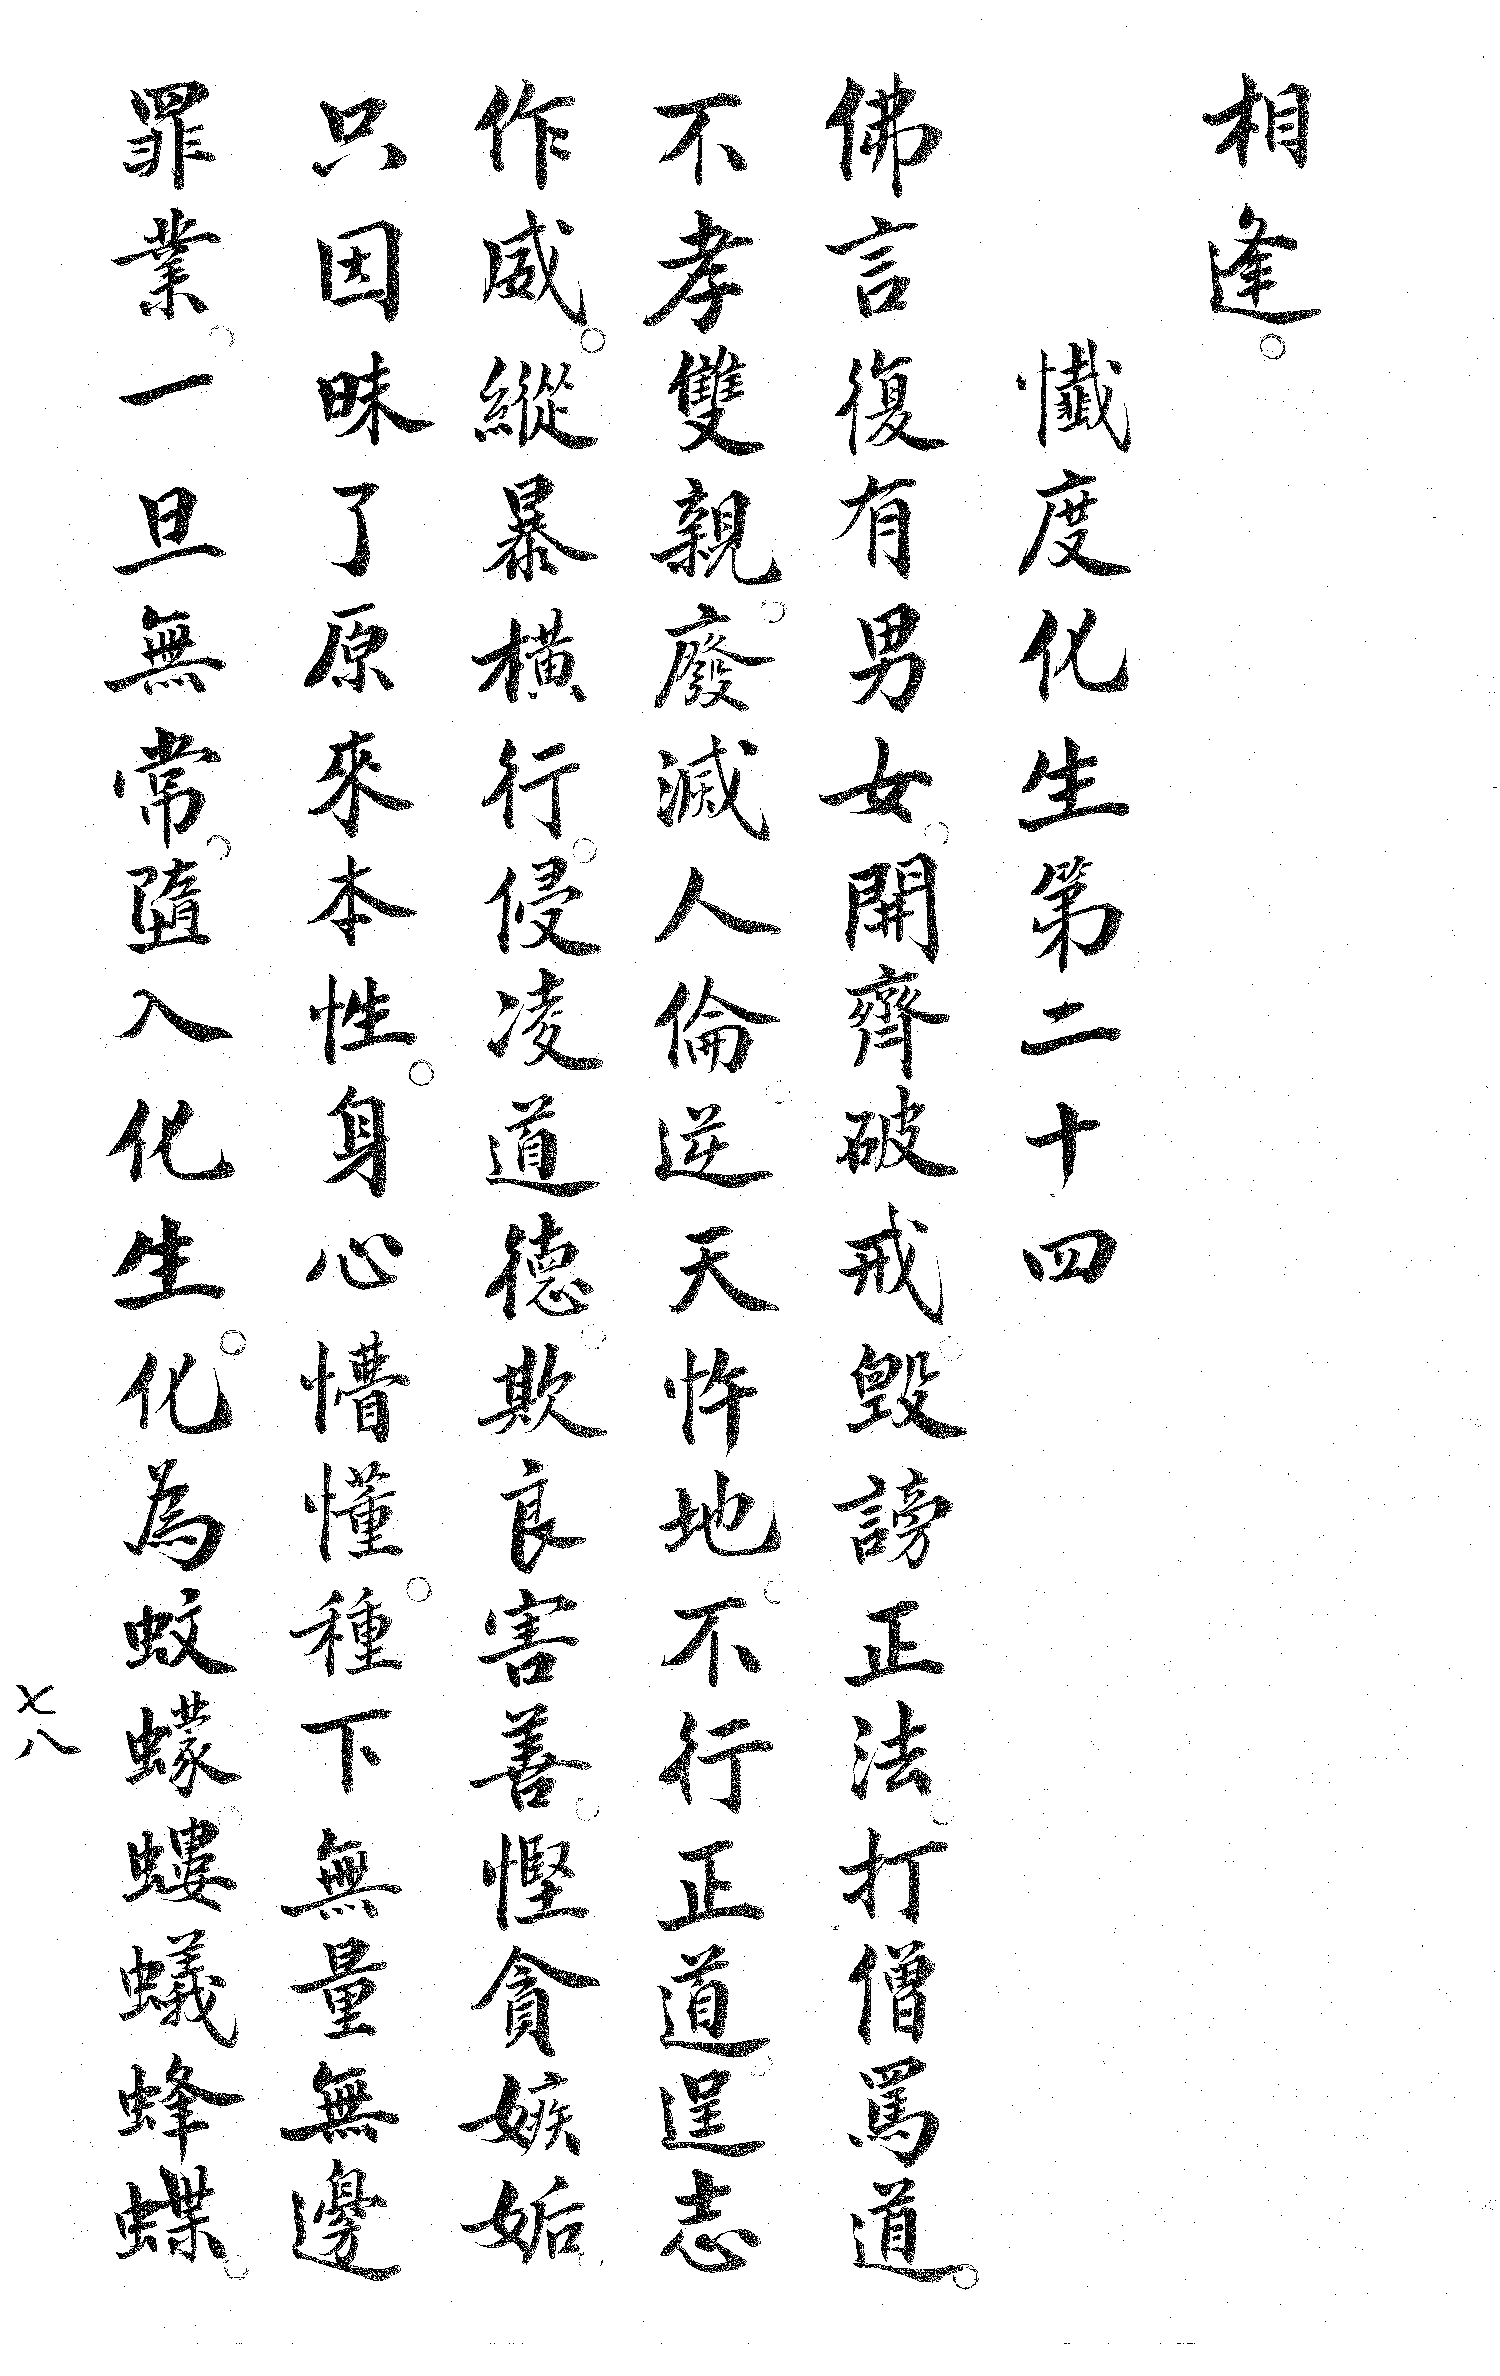 相逢。
懺度化生第二十四
佛言復有男女。開齊破戒。毀謗正法。打僧罵道。
不孝雙親。廢滅人倫。逆天忤地。不行正道。逞志
作威。縱暴橫行。侵凌道德。欺良害善。慳貪嫉妬。
只因昧了原來本性。身心懵懂。種下無量無邊
罪業。一旦無常。墮入化生。化為蚊蠓。螻蟻蜂蝶。
七八